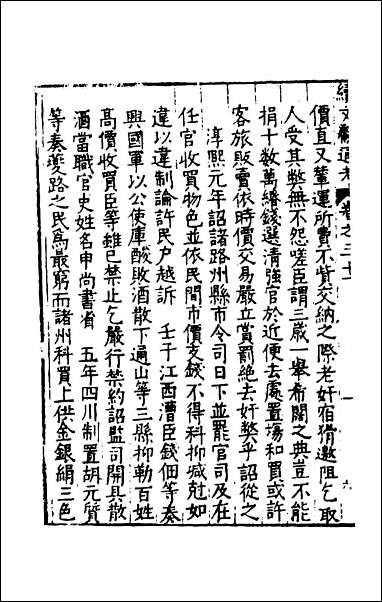 續文獻通考 卷之三十
價直又輦運所費不貲交納之際老奸宿猾邀阻乞取
人受其弊無不怨嗟臣謂三歲一舉希闊之典豈不能
捐十數萬緡錢選清強官於近便去處置場和買或許
客旅販賣依時價交易嚴立賞罰絕去奸弊乎詔從之
淳熙元年詔諸路州縣市令司日下並罷官司及在
任官收買物色並依民間市價支錢不得科抑減尅如
違以違制論許民戶越訴 壬子江西漕臣錢佃等奏
興國軍以公使庫酸敗酒散下通山等三縣抑勒百姓
高價收買臣等雖已禁止乞嚴行禁約詔監司開具散
酒當職官吏姓名申尚書省 五年四川制置胡元質
等奏夔路之民為最窮而諸州科買上供金銀絹三色